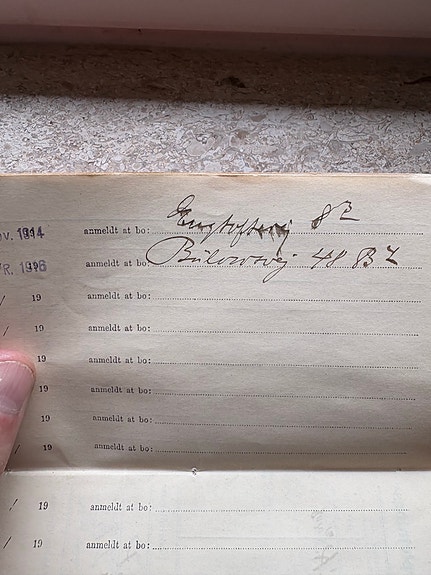 ov. 1914 anmeldt at bo: Engtoftevej 8²
PR. 1916 anmeldt at bo: Bülowsvej 48 B²
/ 19 anmeldt at bo:
/ 19 anmeldt at bo:
19 anmeldt at bo:
19 anmeldt at bo:
19 anmeldt at bo:
/ 19 anmeldt at bo:
/ 19 anmeldt at bo:
/ 19 anmeldt at bo: